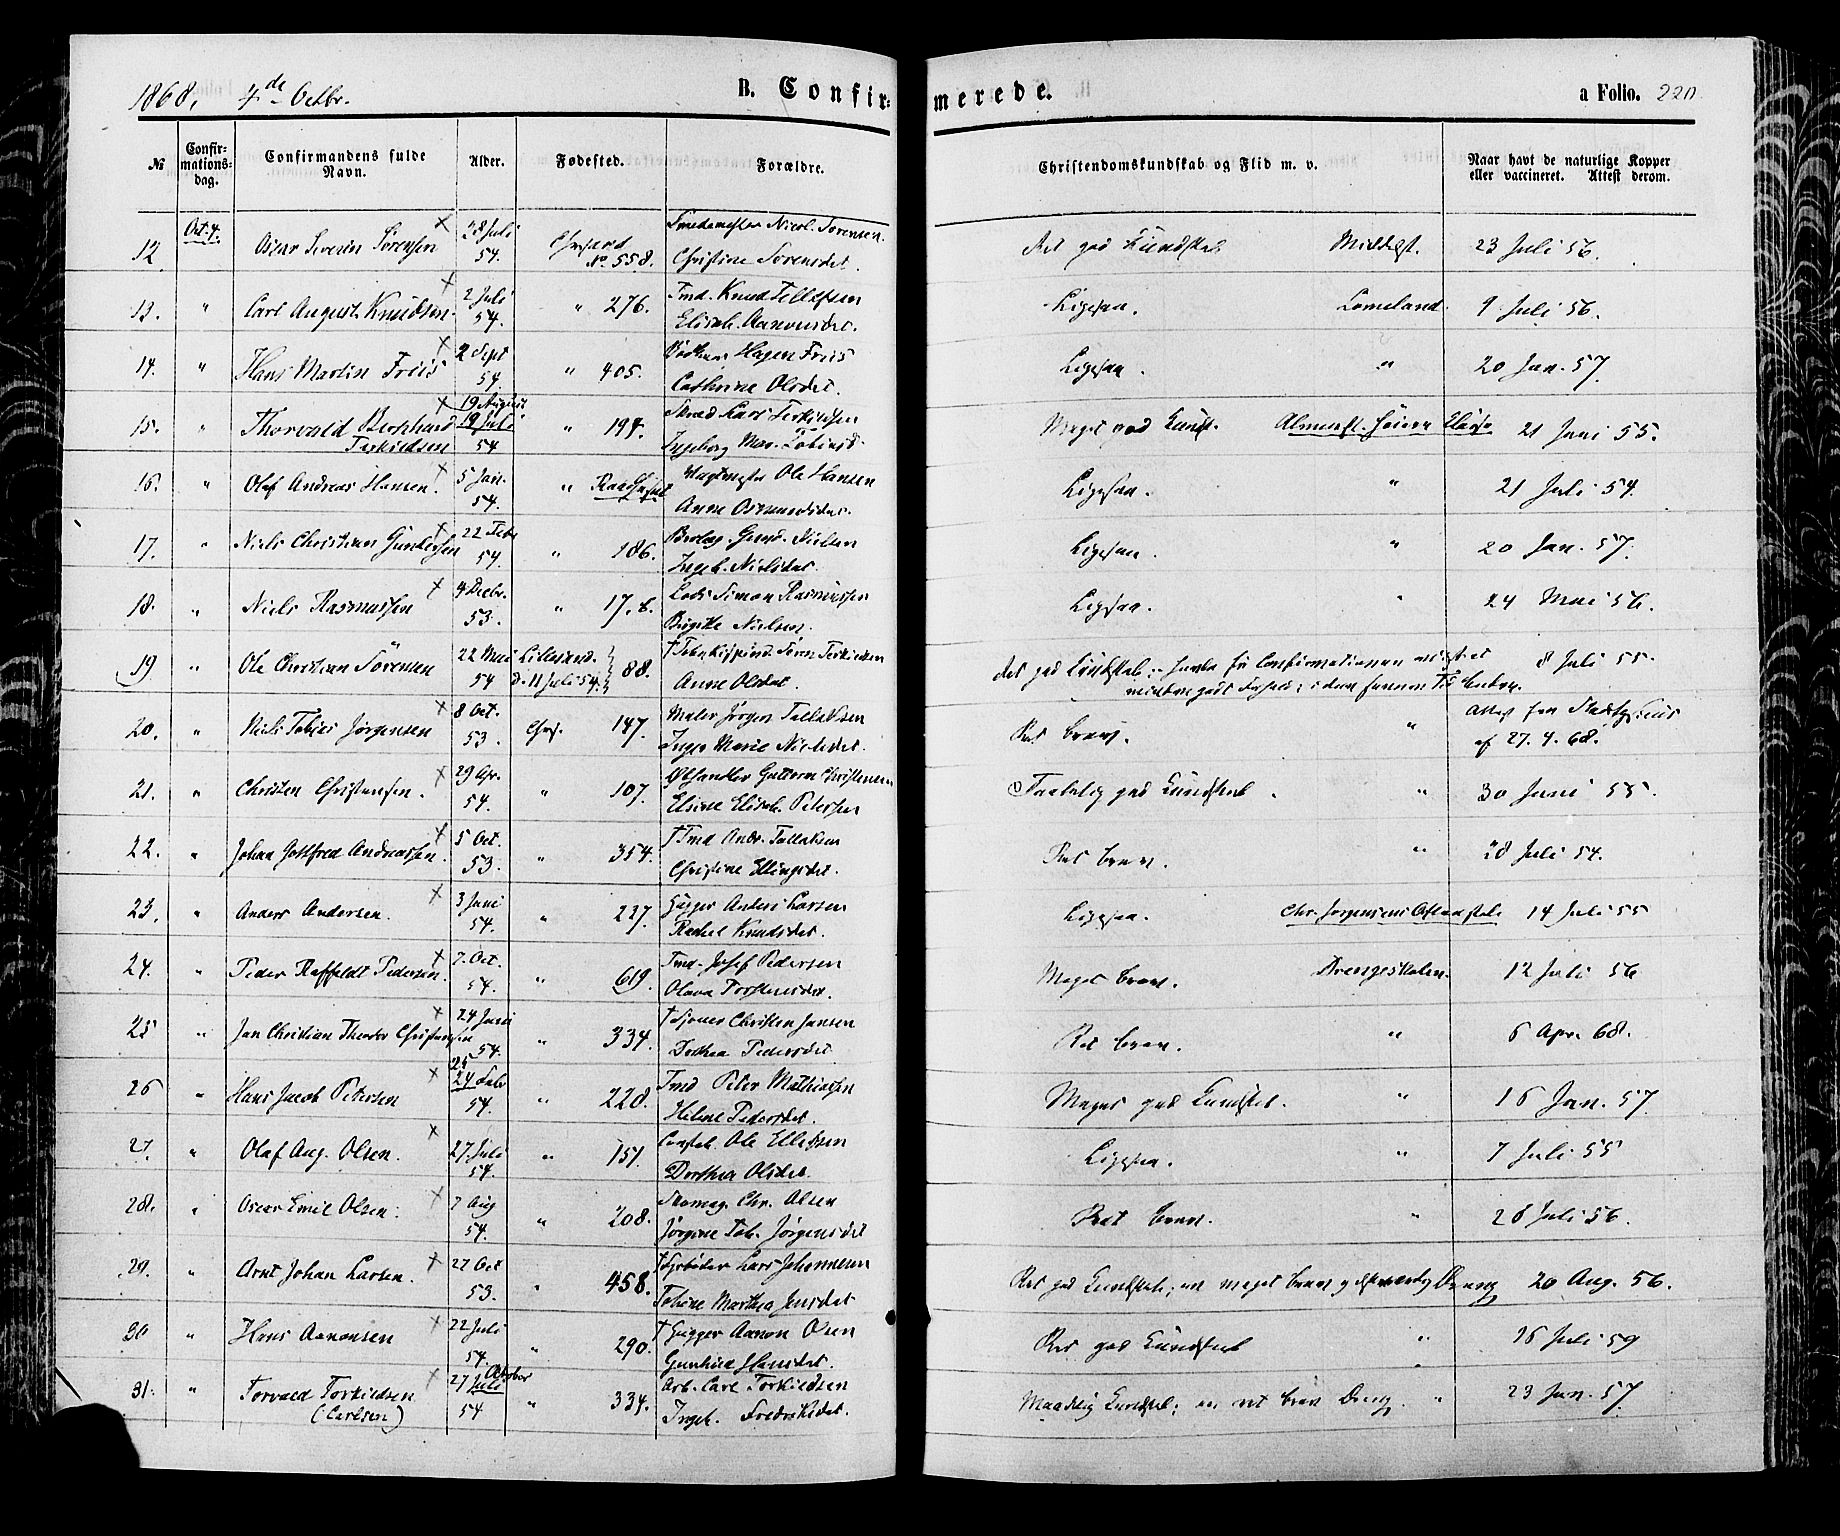 1868, 4de Octbr. B. Confirmerede. a Folio. 220.
№ Confirmationsdag. Confirmandens fulde Navn. Alder. Fødested. Forældre. Christendomskundskab og Flid m. v. Naar havt de naturlige Kopper eller vaccineret. Attest derom.
12. Oct. 4. Oscar Severin Sørensen 28 Juli 54. № 558. Nicol. Sørensen. Christine Sorensdet. Ret god Kundskab Middelst. 23 Juli 56.
13. " Carl August Knudsen. 2 Juli 54. " 276. Tmd. Knud Tellefsen Elisab. Aanonsdet. Ligesaa. 9 Juli 56.
14. " Hans Martin Friis 2 Sept 54. " 405. Hagen Friis Cathrine Olsdet. Ligesaa. " 20 Jan. 57.
15. " Thorvald Bernhard Terkildsen 19 August 19 Juli 54 " 194. Lars Terkildsen Ingeborg Mar. Tobiasd. Meget god Kundsk. 21 Juni 55.
16. " Olaf Andreas Hansen. 5 Jan. 54. " Raadhuset Ole Hansen Anne Ligesaa. " 21 Juli 54.
17. " Niels Christian Gundersen 22 Febr 54. " 186. Gund. Nielsen Ingeb. Nielsdet. Ligesaa. " 20 Jan. 57.
18. " Niels Rasmussen 4 Decbr. 53. " 17. b. Lods Simon Rasmussen Birgitte Nielsen. Ligesaa. " 24 Mai 56.
19 " Ole Christian Sörensen 22 Mai 54 Lillesand. d. 11 Juli 54. 88. Sören Terkildsen Anne Olsdet. Ret god Kundskab 8 Juli 55.
20. " Niels Tobias Jørgensen 8 Oct. 53. Chrs. 147. Maler Jørgen Tallaksen Inger Marie Nielsdet. Ret brav. " Attest fra af 27. 4. 68.
21. " Christen Christensen. 29 Apr. 54. " 107. Guttorm Christensen Elsine Elisab. Petersen Taalelig god Kundskab. " 30 Juni 55.
22. " Johan Gottfred Andreassen. 5 Oct. 53. " 354. † Tmd Andr. Tallaksen Christine Ellingsdet. Ret brav. " 28 Juli 54.
23. " Anders Andersen. 3 Juni 54. " 227. Anders Larsen Rachel Knudsdet. Ligesaa. Chr. Jørgensens Aftenskole 14 Juli 55
24. " Peder Raffeldt Pedersen. 7. Oct. 54. " 619. Tmd. Josef Pedersen Olava Torstensdet. Meget brav. Drengeskolen. 12 Juli 56
25 " Jan Christian Theodor Christensen 24 Juni 54. " 334. † Christen Jansen Dorthea Pedersdet Ret brav. " 6 Apr. 68.
26 " Hans Jacob Petersen 25 24 54. " 220. Tmd Peter Mathiasen Helene Pedersdet. Meget god Kundskab. " 16 Jan. 57
27. " Olaf Aug. Olsen. 27 Juli 54. " 151. Ole Ellefsen Dorthea Olsdet. Ligesaa. " 7 Juli 55
28. " Oscar Emil Olsen. 7 Aug 54. " 208. Skomag. Chr. Olsen Jörgine Tob. Jörgensdet Ret brav. " 28 Juli 56.
29. " Arnt Johan Larsen. 27 Oct 53. " 458. Lars Johannesen Tobine Marthea Jensdet Ret god Kundskab; en meget brav Dreng 20 Aug. 56.
30 " Hans Aanonsen 22 Juli 54. " 290. † Aanon Olsen Gunhild Hansdet. Ret god Kundskab " 16 Juli 59
31. " Torvald Torkildsen (Carlsen) 27 Juli October 54 " 334. Arb. Carl Torkildsen Ingeb. Fredriksdet. Maadelig Kundskab; en ret brav Dreng. " 23 Jan. 57